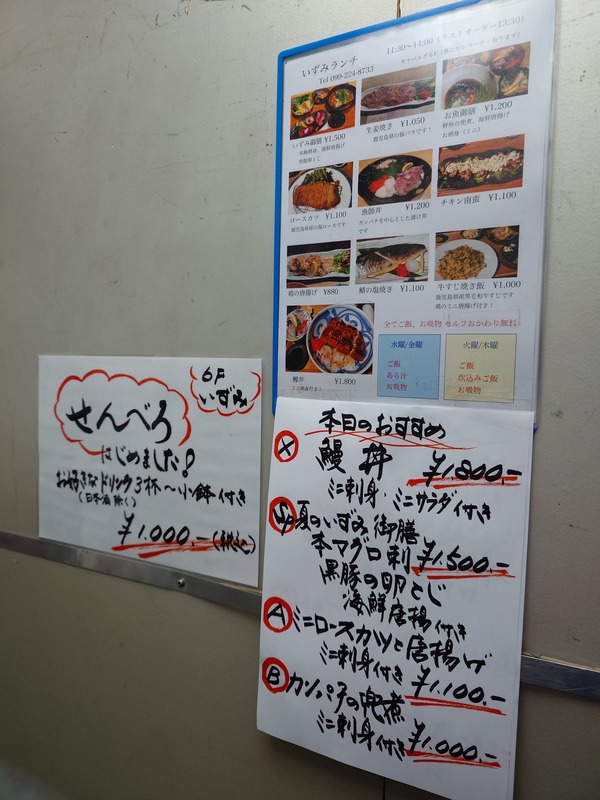 いずみランチ
11:30～14:00（ラストオーダー13:30）
Tel 099-224-8733
いずみ御膳 ¥1,500
生姜焼き ¥1,050
鹿児島県の豚バラです！
お魚御膳 ¥1,200
お刺身（ミニ）
ロースカツ ¥1,100
鹿児島県産の豚ロースです
漁師丼 ¥1,200
カンパチを中心とした漬け丼
です
チキン南蛮 ¥1,100
鶏の唐揚げ ¥880
鯖の塩焼き ¥1,100
牛すじ焼き飯 ¥1,000
鹿児島県産黒毛和牛すじです
鶏のミニ唐揚げ付き！
鰻丼 ¥1,800
全てご飯、お吸物 セルフおかわり無料
水曜/金曜
ご飯
あら汁
お吸物
火曜/木曜
ご飯
炊込みご飯
お吸物
6F
いずみ
せんべろ
はじめました！
お好きなドリンク3杯～小鉢付き
（日本酒除く）
¥1,000.-（税込）
本日のおすすめ
X 鰻丼 ¥1,800.-
ミニ刺身・ミニサラダ付き
SP 夏のいずみ御膳
本マグロ刺 ¥1,500.-
黒豚の卵とじ
海鮮唐揚付き
A ミニロースカツと唐揚げ
ミニ刺身付き ¥1,100.-
B カンパチの兜煮
ミニ刺身付き ¥1,000.-